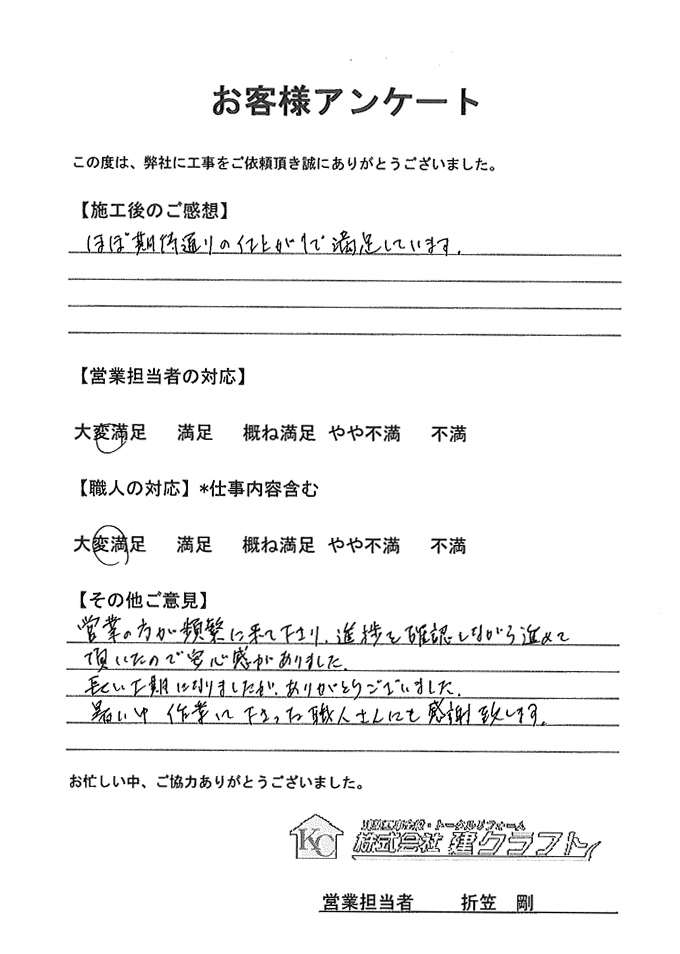 お客様アンケート
この度は、弊社に工事をご依頼頂き誠にありがとうございました。
【施工後のご感想】
ほぼ期待通りの仕上がりで満足しています。
【営業担当者の対応】
大変満足 満足 概ね満足 やや不満 不満
【職人の対応】*仕事内容含む
大変満足 満足 概ね満足 やや不満 不満
【その他ご意見】
営業の方が頻繁に来て下さり、進捗を確認しながら進めて
頂いたので安心感がありました。
長い工期になりましたが、ありがとうございました。
暑い中 作業して下さった職人さんにも感謝致します。
お忙しい中、ご協力ありがとうございました。
KC
・トータルリフォーム
株式会社 建クラフト
営業担当者 折笠 剛